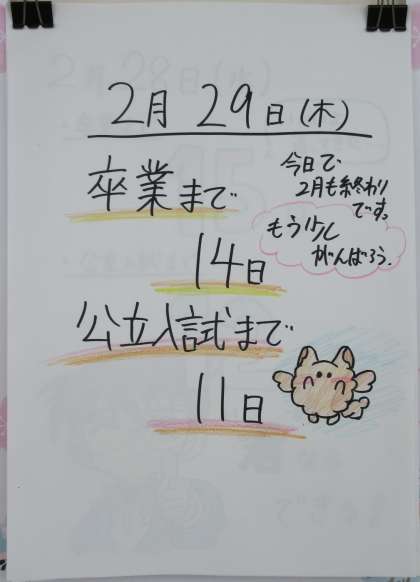 2月 29日(木)
卒業まで
14日
今日で
2月も終わり
です。
もう少し
がんばろう.
公立入試まで
11日